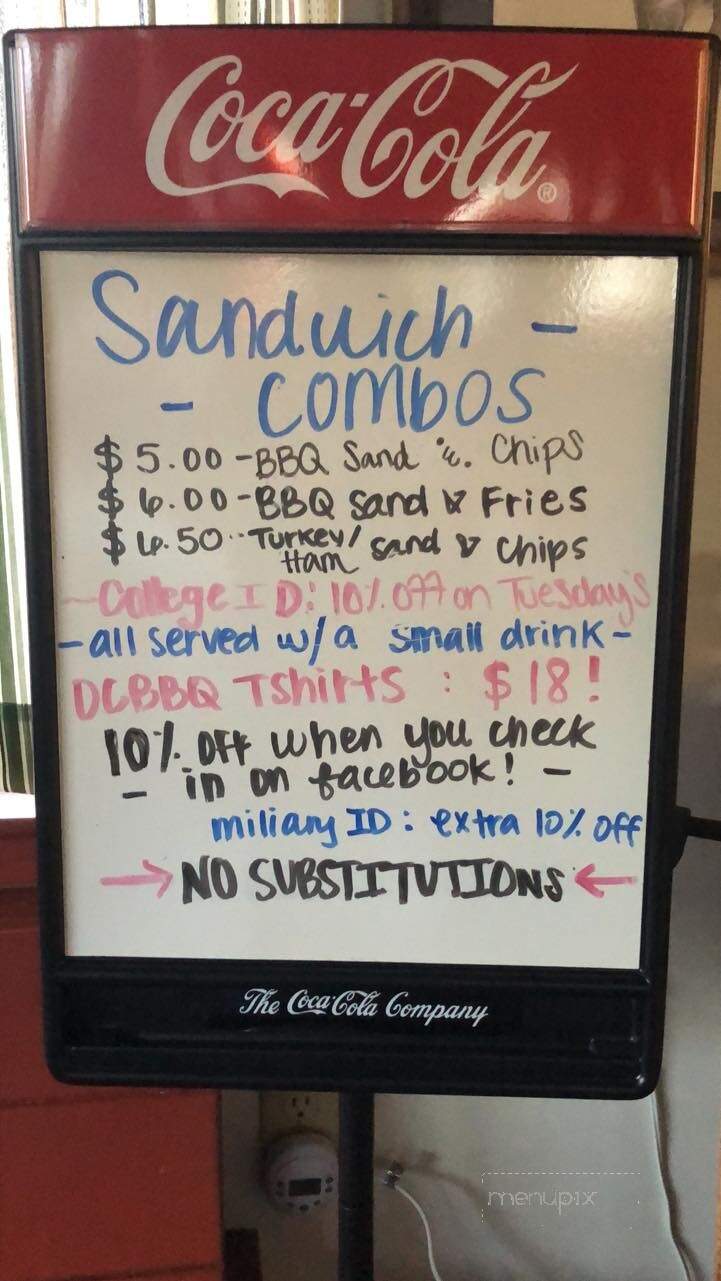 Coca-Cola ®
Sandwich -
- combos
$5.00 - BBQ Sand &. Chips
$6.00 - BBQ sand & Fries
$6.50 - Turkey/Ham sand & chips
- College ID: 10% off on Tuesday's
- all served w/a small drink -
DCBBQ Tshirts : $18!
10% OFF when you check
- in on facebook! -
miliary ID: extra 10% off
→ NO SUBSTITUTIONS ←
The Coca-Cola Company
menupix